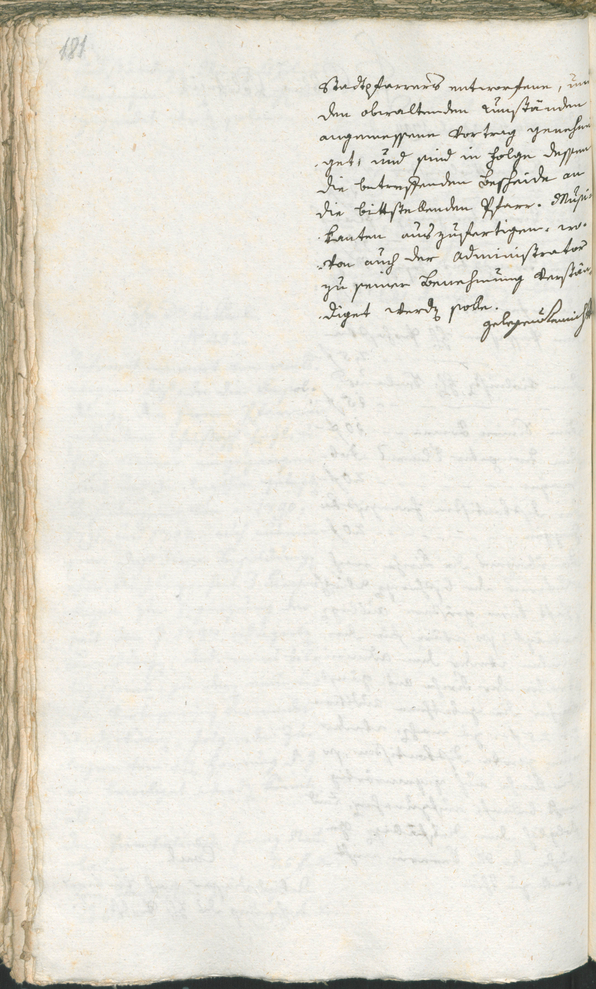 181
Stadtpfarrers entworfene, und
den obwaltenden Umständen
angemessene Vortrag genehm
get, und sind in Folge dessen
die betreffenden Bescheide an
die bittstellenden Pfarr-Musi
kanten auszufertigen, wo
von auch der Administrator
zu seiner Benehmung verstän
diget werden solle.